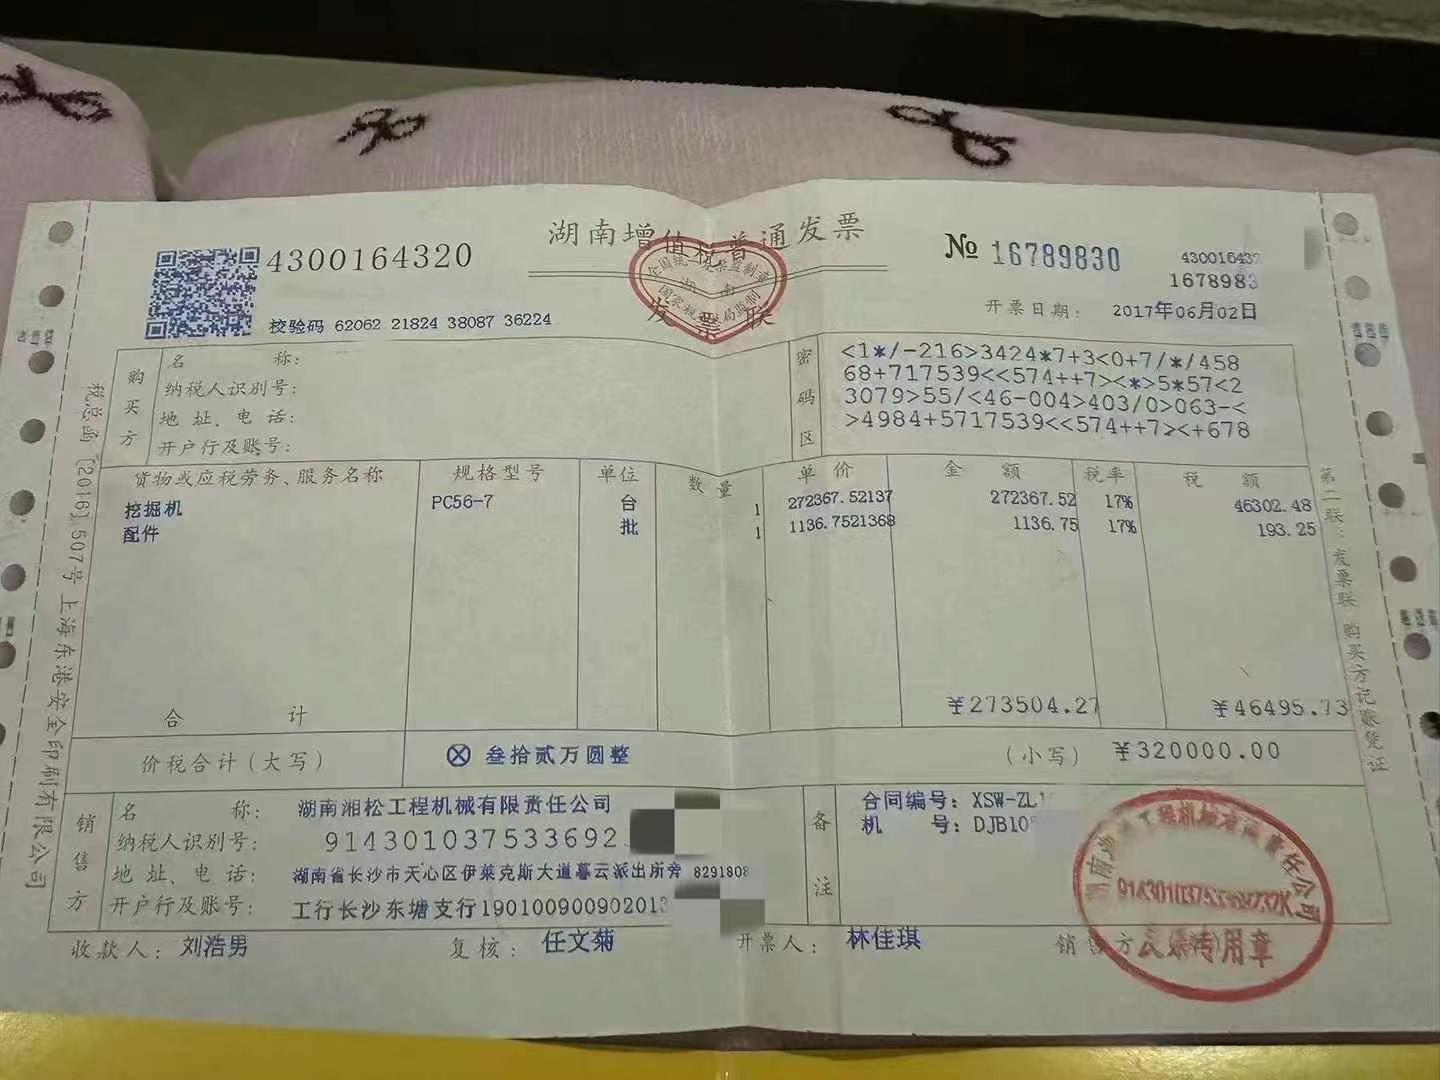 湖南增值税普通发票
发票联
4300164320
№ 16789830
430016432
1678983
校验码 62062 21824 38087 36224
开票日期: 2017年06月02日
购买方
名 称:
纳税人识别号:
地 址、电 话:
开户行及账号:
密码区
<1*/-216>3424*7+3<0+7/*/458
68+717539<<574++7><*>5*57<2
3079>55/<46-004>403/0>063-<
>4984+5717539<<574++7><+678
货物或应税劳务、服务名称 规格型号 单位 数量 单价 金额 税率 税额
挖掘机 PC56-7 台 1 272367.52137 272367.52 17% 46302.48
配件 批 1 1136.7521368 1136.75 17% 193.25
合 计 ¥273504.27 ¥46495.73
价税合计(大写) ⊗ 叁拾贰万圆整 (小写) ¥320000.00
销售方
名 称: 湖南湘松工程机械有限责任公司
纳税人识别号: 914301037533692
地 址、电 话: 湖南省长沙市天心区伊莱克斯大道暮云派出所旁 8291808
开户行及账号: 工行长沙东塘支行190100900902013
备注
合同编号: XSW-ZL
机 号: DJB10
收款人: 刘浩男 复核: 任文菊 开票人: 林佳琪 销售方
税总函[2016]507号上海东港安全印刷有限公司
第二联:发票联 购买方记账凭证